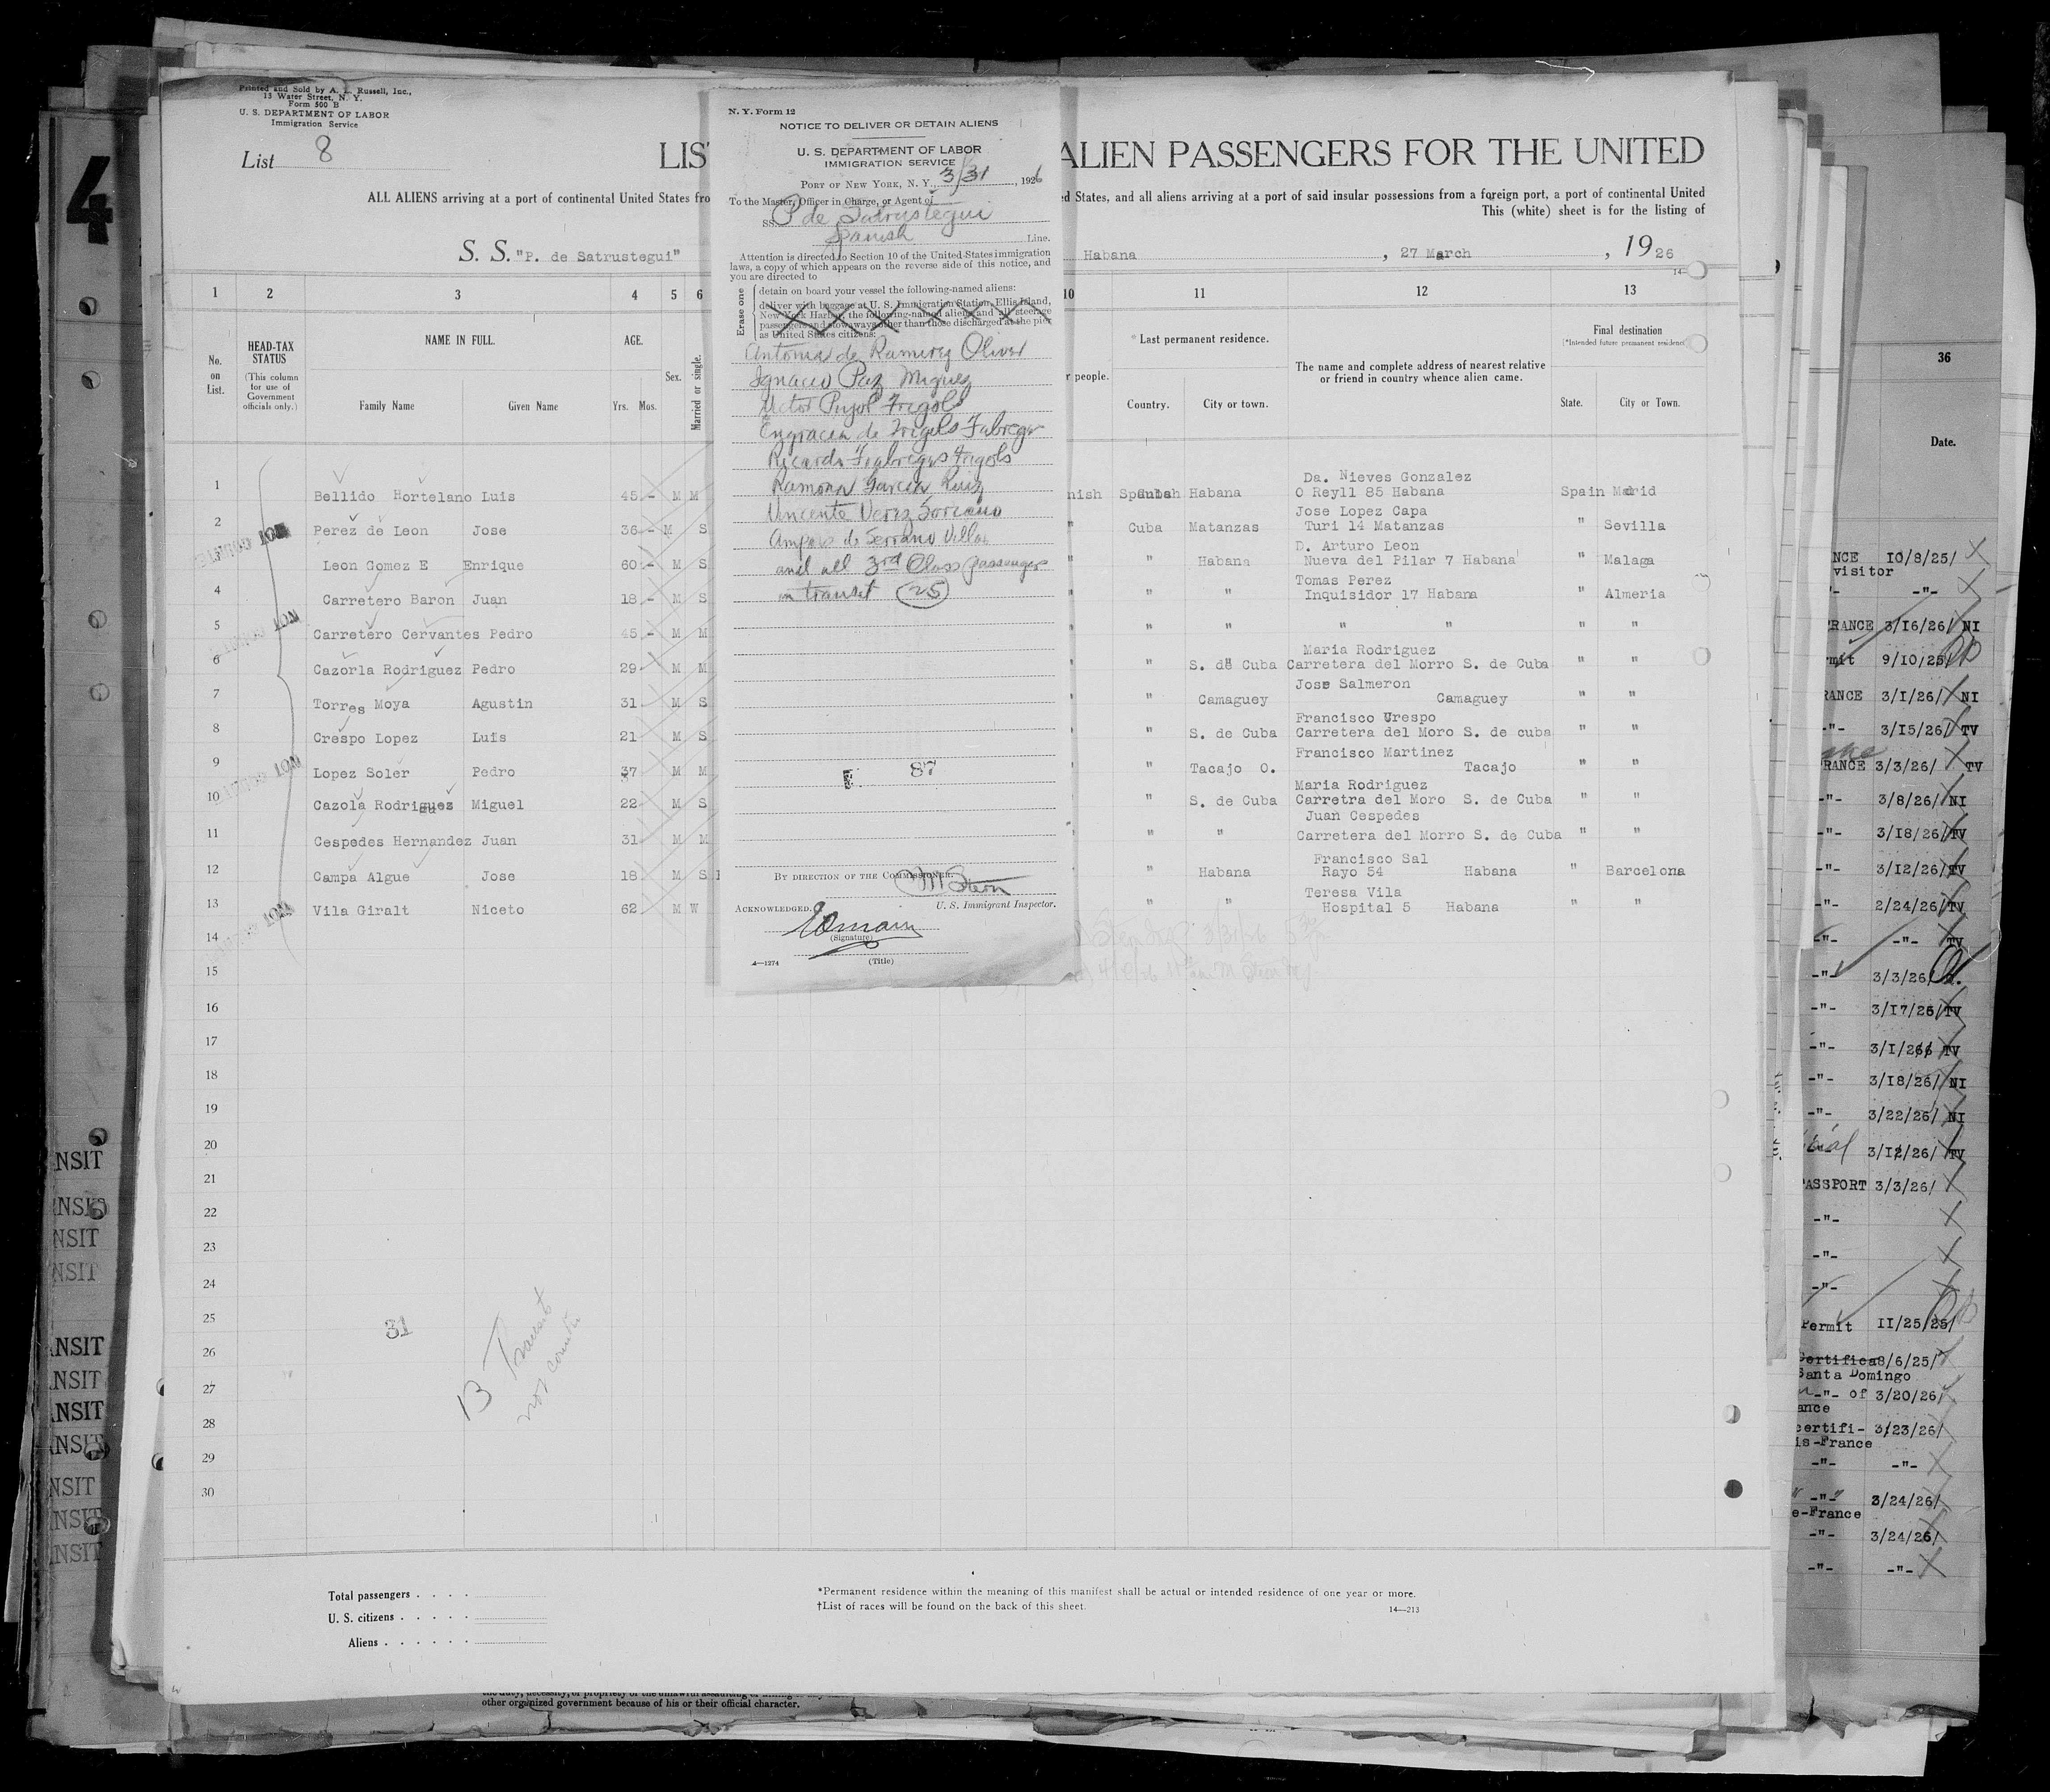 Printed and Sold by A. L. Russell, Inc.,
13 Water Street, N. Y.
Form 500 B
U. S. DEPARTMENT OF LABOR
Immigration Service
List 8
LIS
ALIEN PASSENGERS FOR THE UNITED
ALL ALIENS arriving at a port of continental United States fro
d States, and all aliens arriving at a port of said insular possessions from a foreign port, a port of continental United
This (white) sheet is for the listing of
S. S. "P. de Satrustegui"
Habana , 27 March , 1926
N. Y. Form 12
NOTICE TO DELIVER OR DETAIN ALIENS
U. S. DEPARTMENT OF LABOR
IMMIGRATION SERVICE
PORT OF NEW YORK, N. Y., 3/31, 1926
To the Master, Officer in Charge, or Agent of
SS. P de Satrustegui
Spanish Line.
Attention is directed to Section 10 of the United States immigration
laws, a copy of which appears on the reverse side of this notice, and
you are directed to
Erase one
detain on board your vessel the following-named aliens:
deliver with baggage at U. S. Immigration Station, Ellis Island,
New York Harbor, the following-named aliens and all steerage
passengers and stowaways other than those discharged at the pier
as United States citizens:
Antonia de Ramirez Oliver
Ignacio Paz Miguez
Victor Pujol Fregols
Engracia de Frigols Fabregas
Ricardo Frabregas Frigols
Ramona Garcia Ruiz
Vincente Veres Soriano
Amparo de Serrano Villar
and all 3rd Class passengers
in transit 25
87
BY DIRECTION OF THE COMMISSIONER.
M Stern
U. S. Immigrant Inspector.
ACKNOWLEDGED.
(Signature)
(Title)
4—1274
1 2 3 4 5 6 10 11 12 13
No. on List.
HEAD-TAX STATUS
(This column for use of Government officials only.)
NAME IN FULL.
Family Name Given Name
AGE.
Yrs. Mos.
Sex.
Married or single.
r people.
*Last permanent residence.
Country. City or town.
The name and complete address of nearest relative
or friend in country whence alien came.
Final destination
(*Intended future permanent residence
State. City or Town.
Da. Nieves Gonzalez
1 Bellido Hortelano Luis 45 - M M nish Habana O Reyll 85 Habana Spain Madrid
Jose Lopez Capa
2 Perez de Leon Jose 36 - M S " Cuba Matanzas Turi 14 Matanzas " Sevilla
D. Arturo Leon
3 Leon Gomez E Enrique 60 - M S " " Habana Nueva del Pilar 7 Habana " Malaga
Tomas Perez
4 Carretero Baron Juan 18 - M S " " " Inquisidor 17 Habana " Almeria
5 Carretero Cervantes Pedro 45 - M M " " " " " " "
Maria Rodriguez
6 Cazorla Rodriguez Pedro 29 M M " " S. de Cuba Carretera del Morro S. de Cuba " "
Jose Salmeron
7 Torres Moya Agustin 31 M S " " Camaguey Camaguey " "
Francisco Crespo
8 Crespo Lopez Luis 21 M S " " S. de Cuba Carretera del Moro S. de cuba " "
Francisco Martinez
9 Lopez Soler Pedro 37 M M " " Tacajo O. Tacajo " "
Maria Rodriguez
10 Cazola Rodriguez Miguel 22 M S " " S. de Cuba Carretra del Moro S. de Cuba " "
Juan Cespedes
11 Cespedes Hernandez Juan 31 M M " " " Carretera del Morro S. de Cuba " "
Francisco Sal
12 Campa Algue Jose 18 M S " " Habana Rayo 54 Habana " Barcelona
Teresa Vila
13 Vila Giralt Niceto 62 M W " " " Hospital 5 Habana " "
14
15
16
17
18
19
20
21
22
23
24
25
26
27
28
29
30
31
13 Transit
not counted
Total passengers . . . .
U. S. citizens . . . . .
Aliens . . . . . .
*Permanent residence within the meaning of this manifest shall be actual or intended residence of one year or more.
†List of races will be found on the back of this sheet.
14—213
other organized government because of his or their official character.
4
NSIT
NSIT
NSIT
NSIT
ANSIT
ANSIT
ANSIT
ANSIT
NSIT
ANSIT
ANSIT
36
Date.
NCE 10/8/25/
visitor
-"-
RANCE 3/16/26/ NI
rmit 9/10/25/
RANCE 3/1/26/ NI
-"- 3/15/26/ TV
RANCE 3/3/26/ TV
-"- 3/8/26/ NI
-"- 3/18/26/ TV
-"- 3/12/26/ TV
-"- 2/24/26/ TV
-"- -"- TV
-"- 3/3/26/
-"- 3/17/26/ TV
-"- 3/1/26 TV
-"- 3/18/26/ NI
-"- 3/22/26/ NI
3/12/26/ TV
PASSPORT 3/3/26/
-"-
-"-
-"-
Permit 11/25/25/
Certifica 8/6/25/
Santa Domingo
-"- of 3/20/26/
ance
certifi- 3/23/26/
is-France
-"- -"-
-"- 3/24/26/
e-France
-"- 3/24/26/
-"- -"-